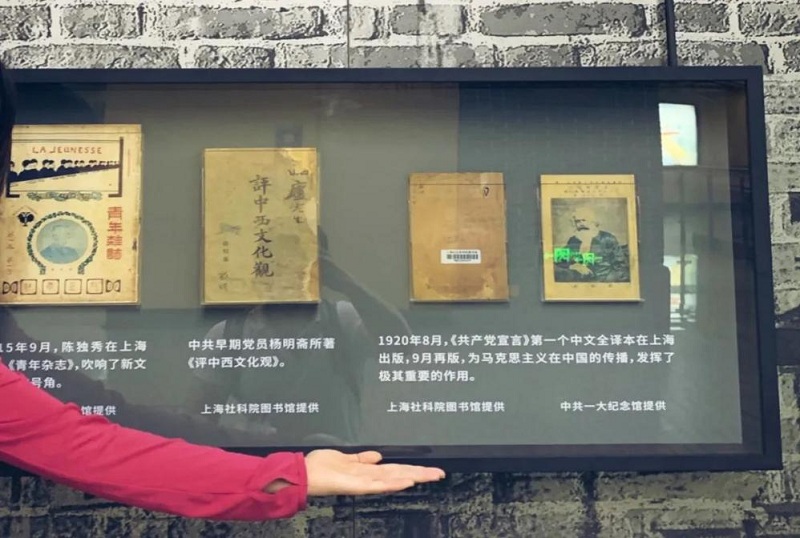 LA JEUNESSE
青年雜誌
評中西文化觀
15年9月，陈独秀在上海
《青年杂志》，吹响了新文
号角。
馆提供
中共早期党员杨明斋所著
《评中西文化观》。
上海社科院图书馆提供
1920年8月，《共产党宣言》第一个中文全译本在上海
出版，9月再版，为马克思主义在中国的传播，发挥了
极其重要的作用。
上海社科院图书馆提供
中共一大纪念馆提供